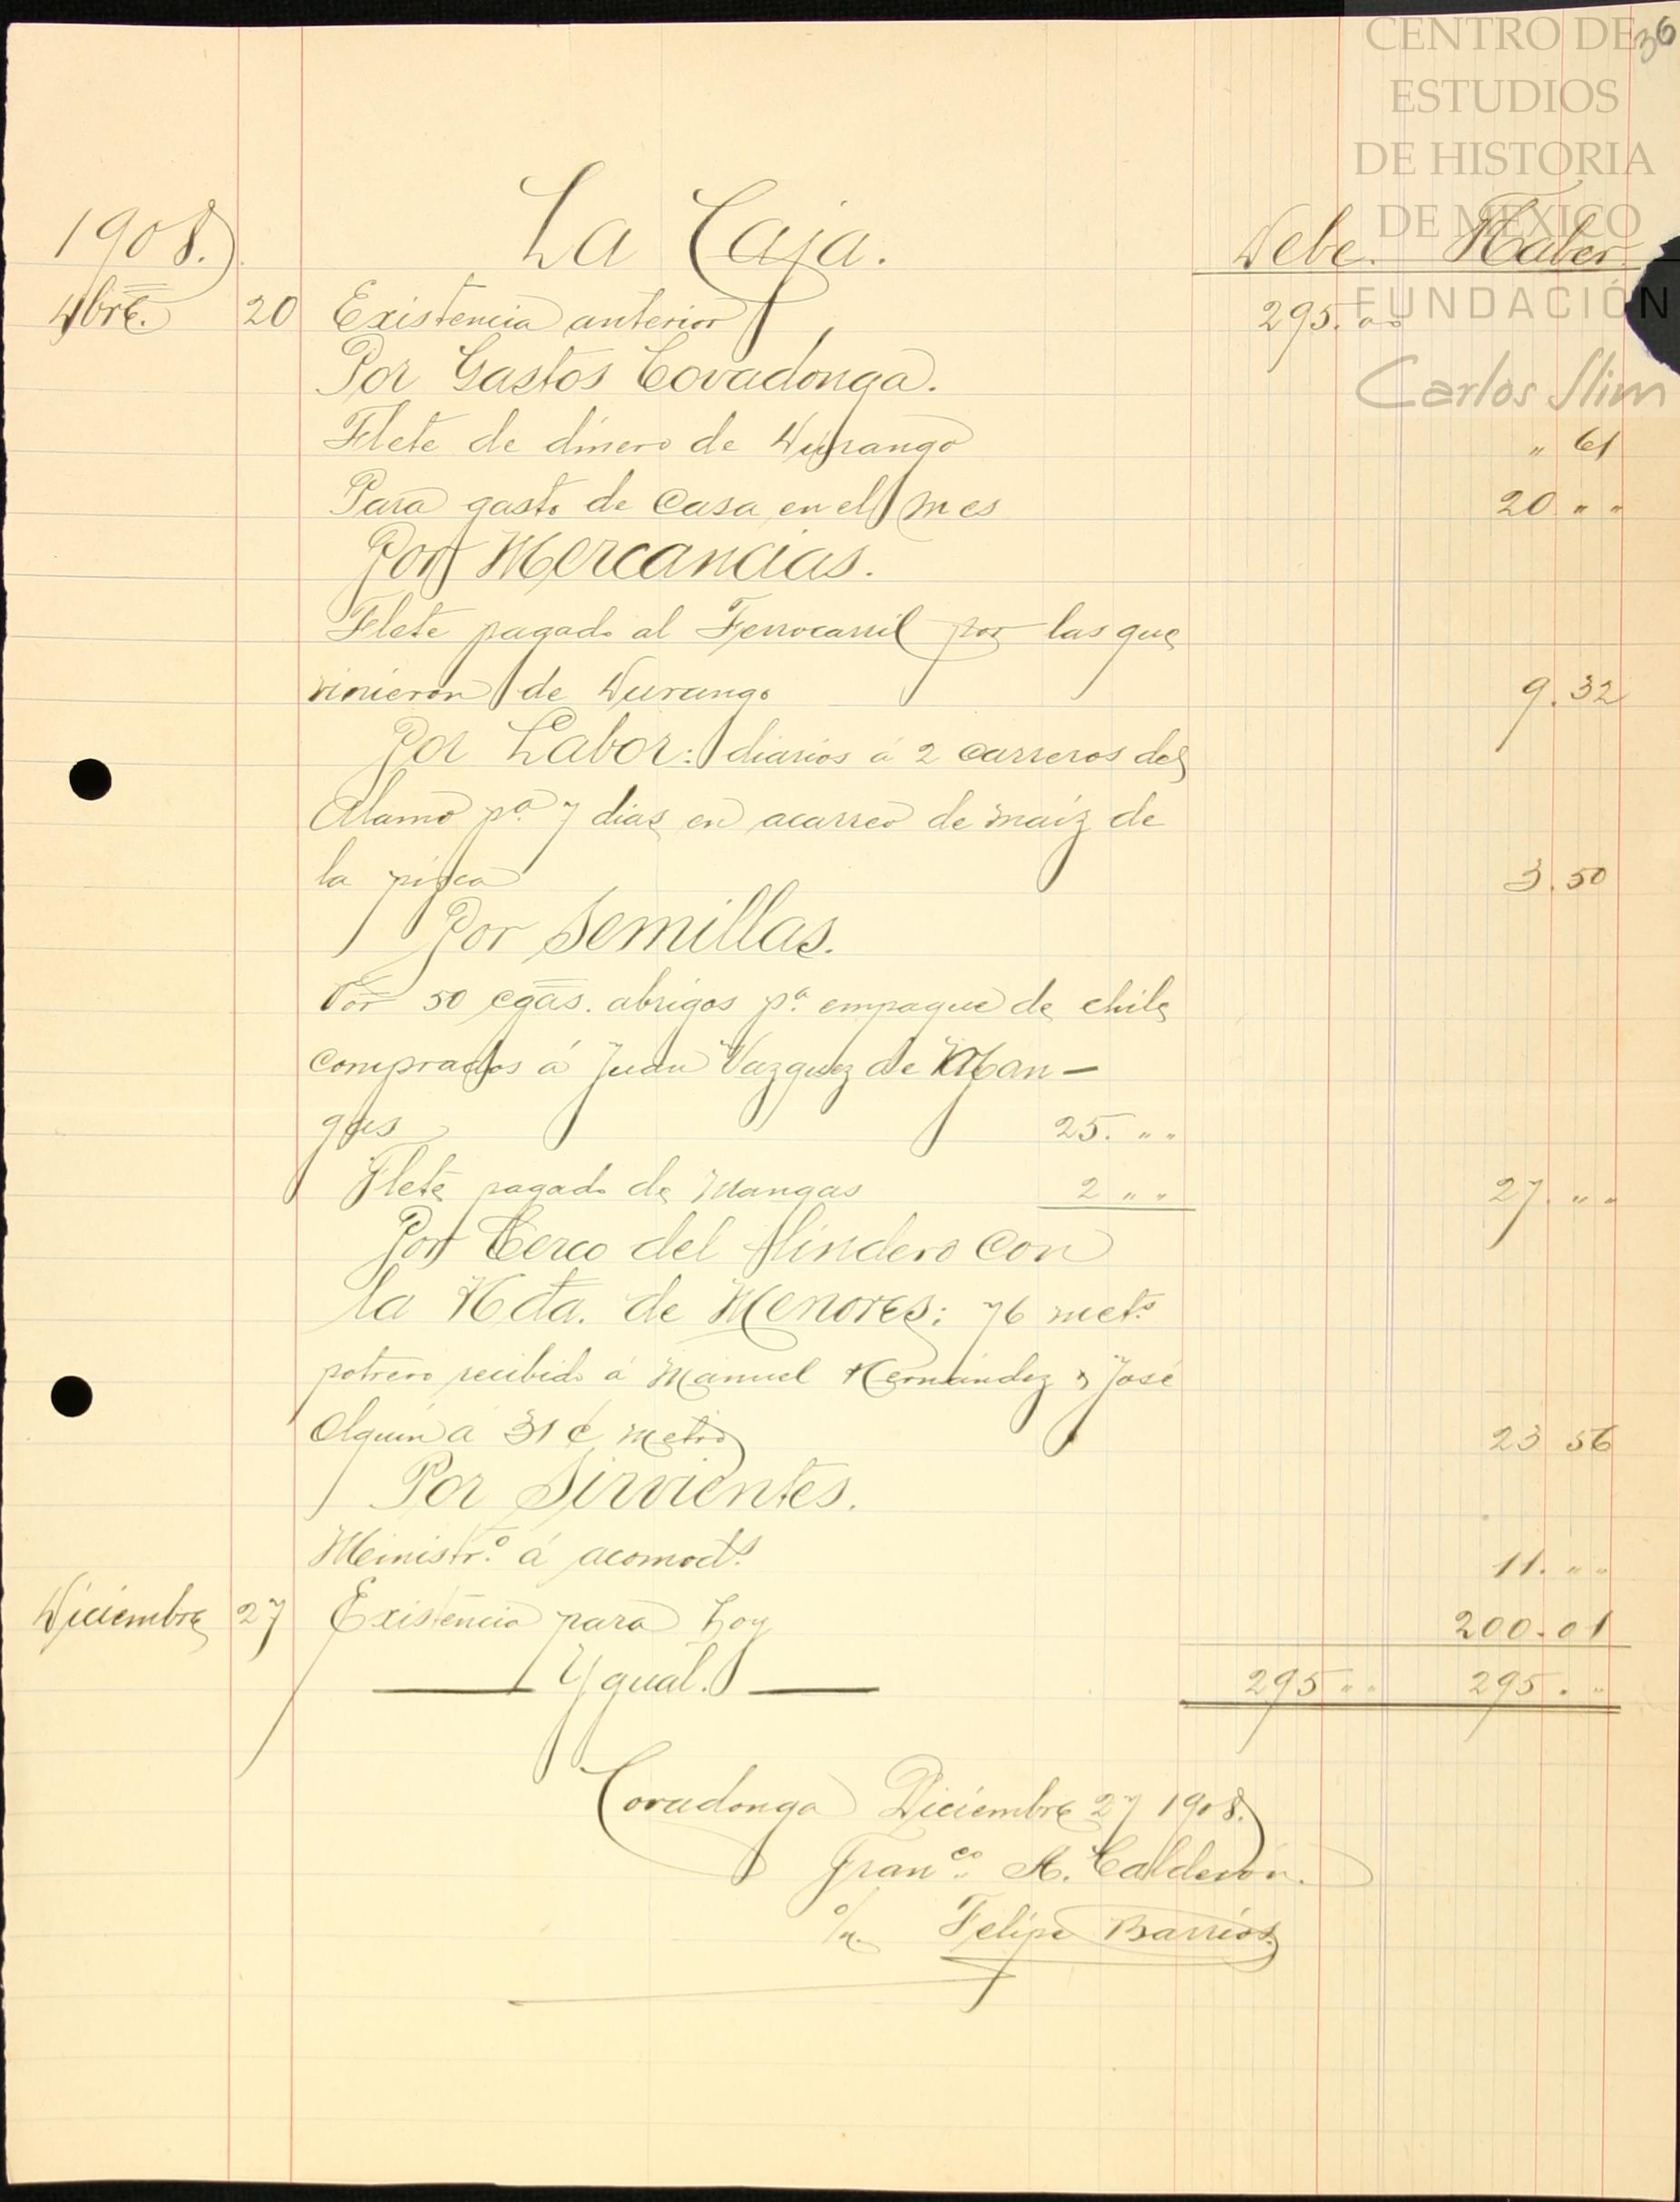 36
CENTRO DE
ESTUDIOS
DE HISTORIA
DE MÉXICO
FUNDACIÓN
Carlos Slim
1908. La Caja. Debe. Haber.
Dbre. 20 Existencia anterior 295.00
Por Gastos Covadonga.
Flete de dinero de Durango " 61
Para gasto de casa en el mes 20 " "
Por Mercancias.
Flete pagado al Ferrocarril por las que
vinieron de Durango 9.32
Por Labor: diarios á 2 carreros del
Alamo pª 7 dias en acarreo de maíz de
la pisca 3.50
Por Semillas.
Por 50 cgas. abrigos pª empaque de chile
comprados á Juan Vazquez de Man-
gas 25. " "
Flete pagado de Mangas 2 " " 27. " "
Por Cerco del lindero con
la Hda. de Menores: 76 mets
potrero recibido á Manuel Hernández y José
Olguin á 31 ¢ metro 23 56
Por Sirvientes.
Ministro. á acomods. 11. " "
Diciembre 27 Existencia para hoy 200.01
Ygual. 295 " " 295. "
Covadonga Diciembre 27 1908.
Franco. A. Calderón.
Felipe Barrios